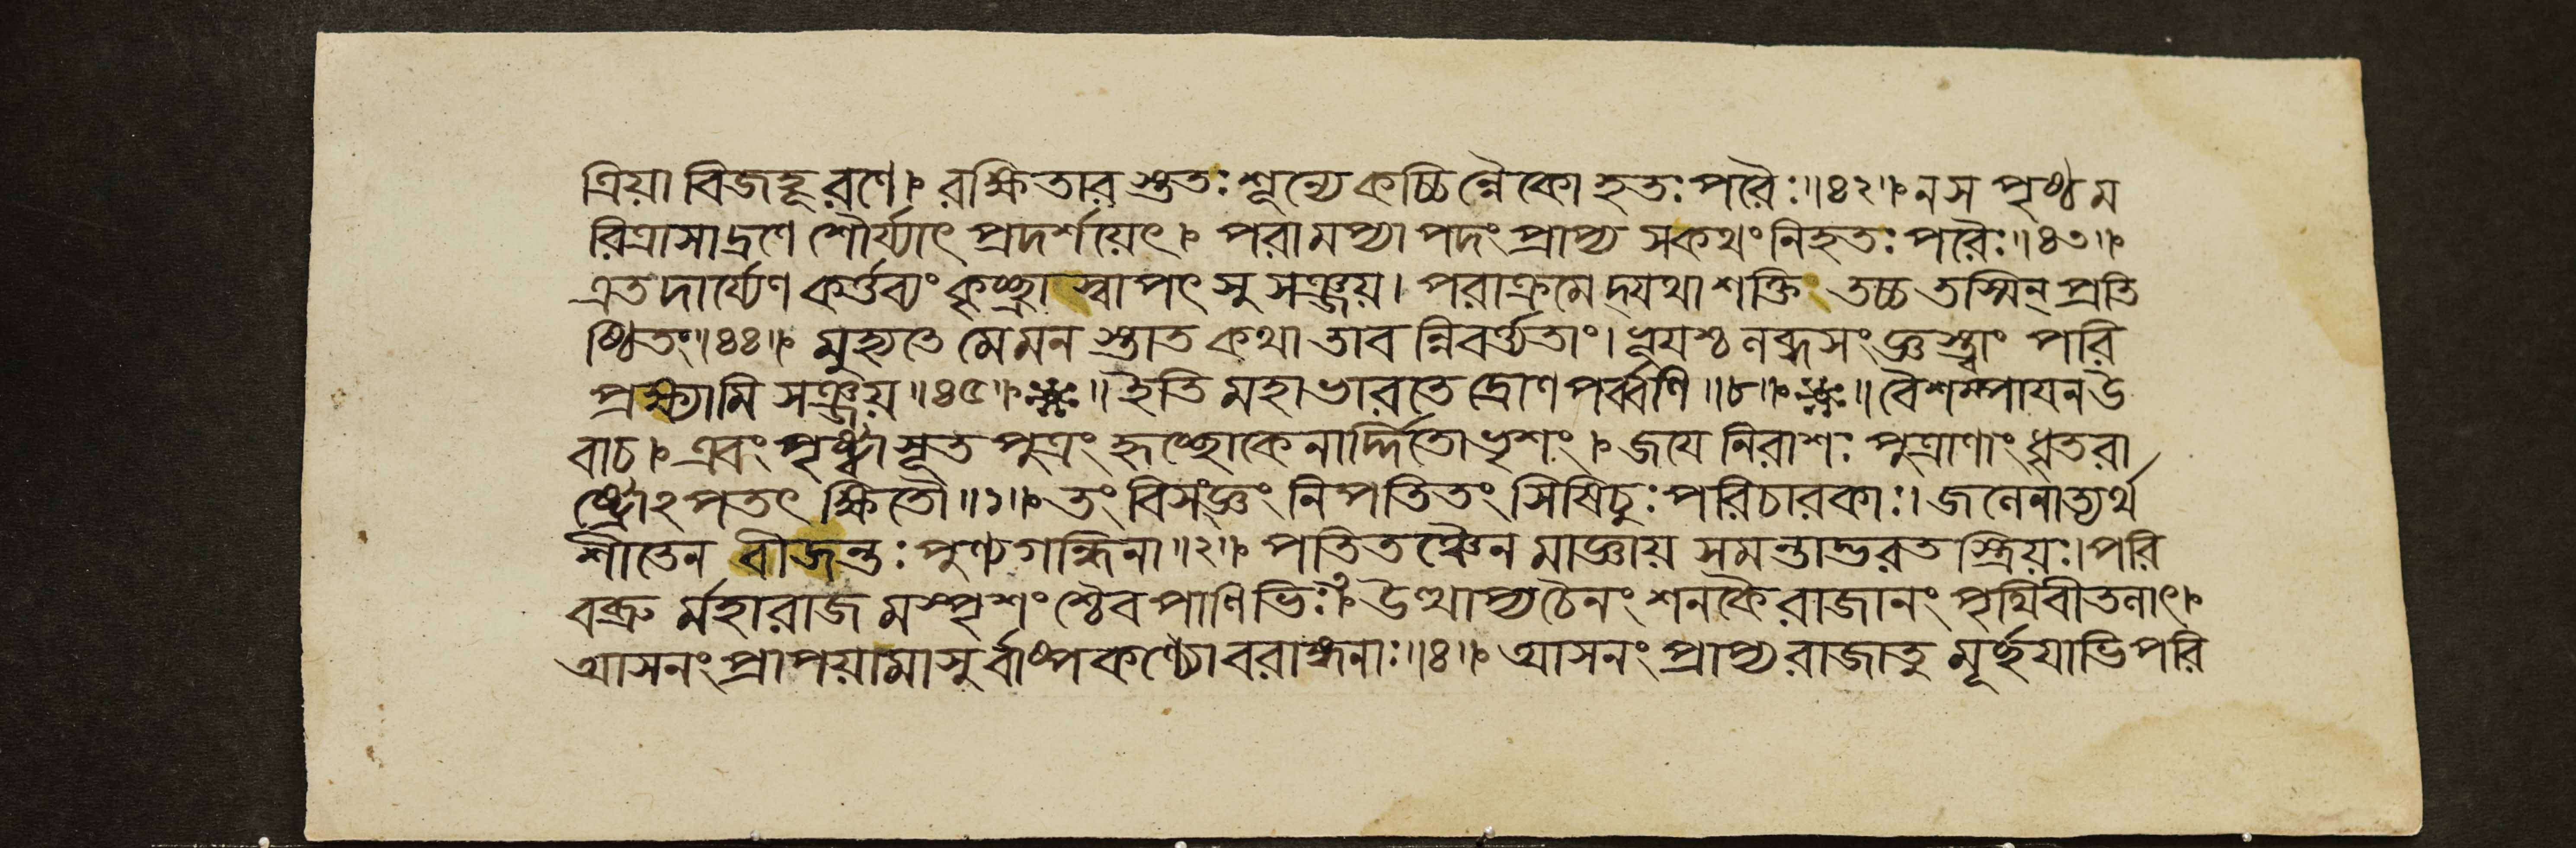 ত্রিয়া বিজহ্রূরণে। রক্ষিতার স্তুতঃ শূন্যে কচ্চিন্নৈকো হতঃ পরৈঃ॥৪২॥ ন স পৃষ্ঠম
রিত্রাসাদ্রণে শৌর্য্যাৎ প্রদর্শয়েৎ। পরামপ্যাপদং প্রাপ্য স কথং নিহতঃ পরৈঃ॥৪৩॥
এতদার্য্যেণ কর্ত্তব্যং কৃচ্ছ্রাস্বাপৎসু সঞ্জয়। পরাক্রমেদ্যথাশক্তি তচ্চ তস্মিন্ প্রতি
ষ্ঠিতং॥৪৪॥ মুহ্যতে মে মনস্তাত কথা তাবন্নিবর্ত্ত্যতাং। ভূয়শ্চ লব্ধসংজ্ঞস্ত্বাং পরি
প্রক্ষ্যামি সঞ্জয়॥৪৫॥ ॥ ইতি মহাভারতে দ্রোণপর্ব্বণি॥৮॥ ॥ বৈশম্পায়ন উ
বাচ। এবং পৃষ্ট্বা সূতপুত্রং হৃচ্ছোকেনার্দ্দিতো ভৃশং। জয়ে নিরাশঃ পুত্রাণাং ধৃতরা
ষ্ট্রোঽপতৎ ক্ষিতৌ॥১॥ তং বিসংজ্ঞং নিপতিতং সিষিচুঃ পরিচারকাঃ। জলেনাত্যর্থ
শীতেন বীজন্তঃ পুণ্যগন্ধিনা॥২॥ পতিতঞ্চৈনমাজ্ঞায় সমন্তাদ্ভরতস্ত্রিয়ঃ। পরি
বব্রুর্মহারাজমস্পৃশংশ্চৈব পাণিভিঃ॥৩॥ উত্থাপ্য চৈনং শনকৈ রাজানং পৃথিবীতলাৎ।
আসনং প্রাপয়ামাসুর্বাষ্পকণ্ঠ্যো বরাঙ্গনাঃ॥৪॥ আসনং প্রাপ্য রাজা তু মূর্চ্ছয়াভিপরি